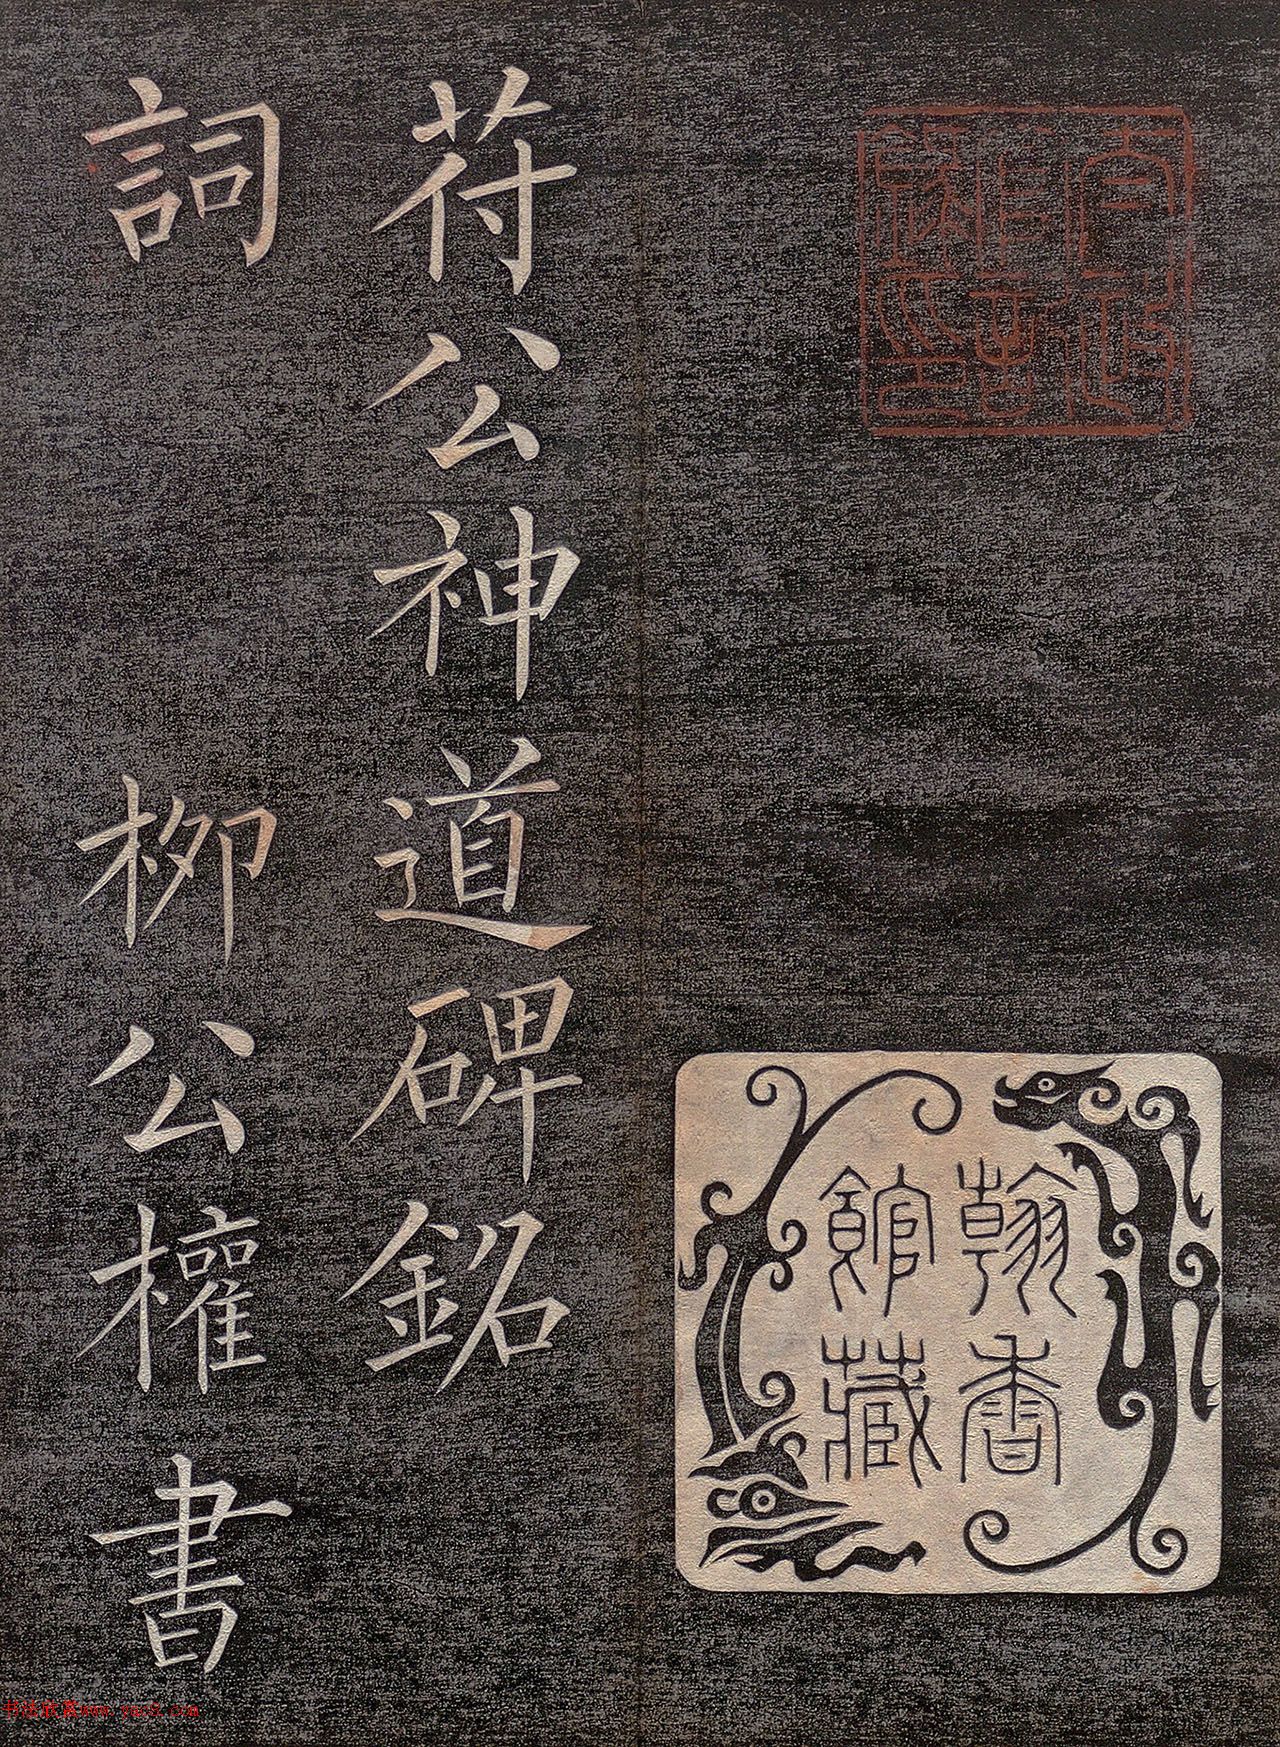 翰香
館藏
苻公神道碑銘
詞 柳公權書
书法欣赏www.yac8.com